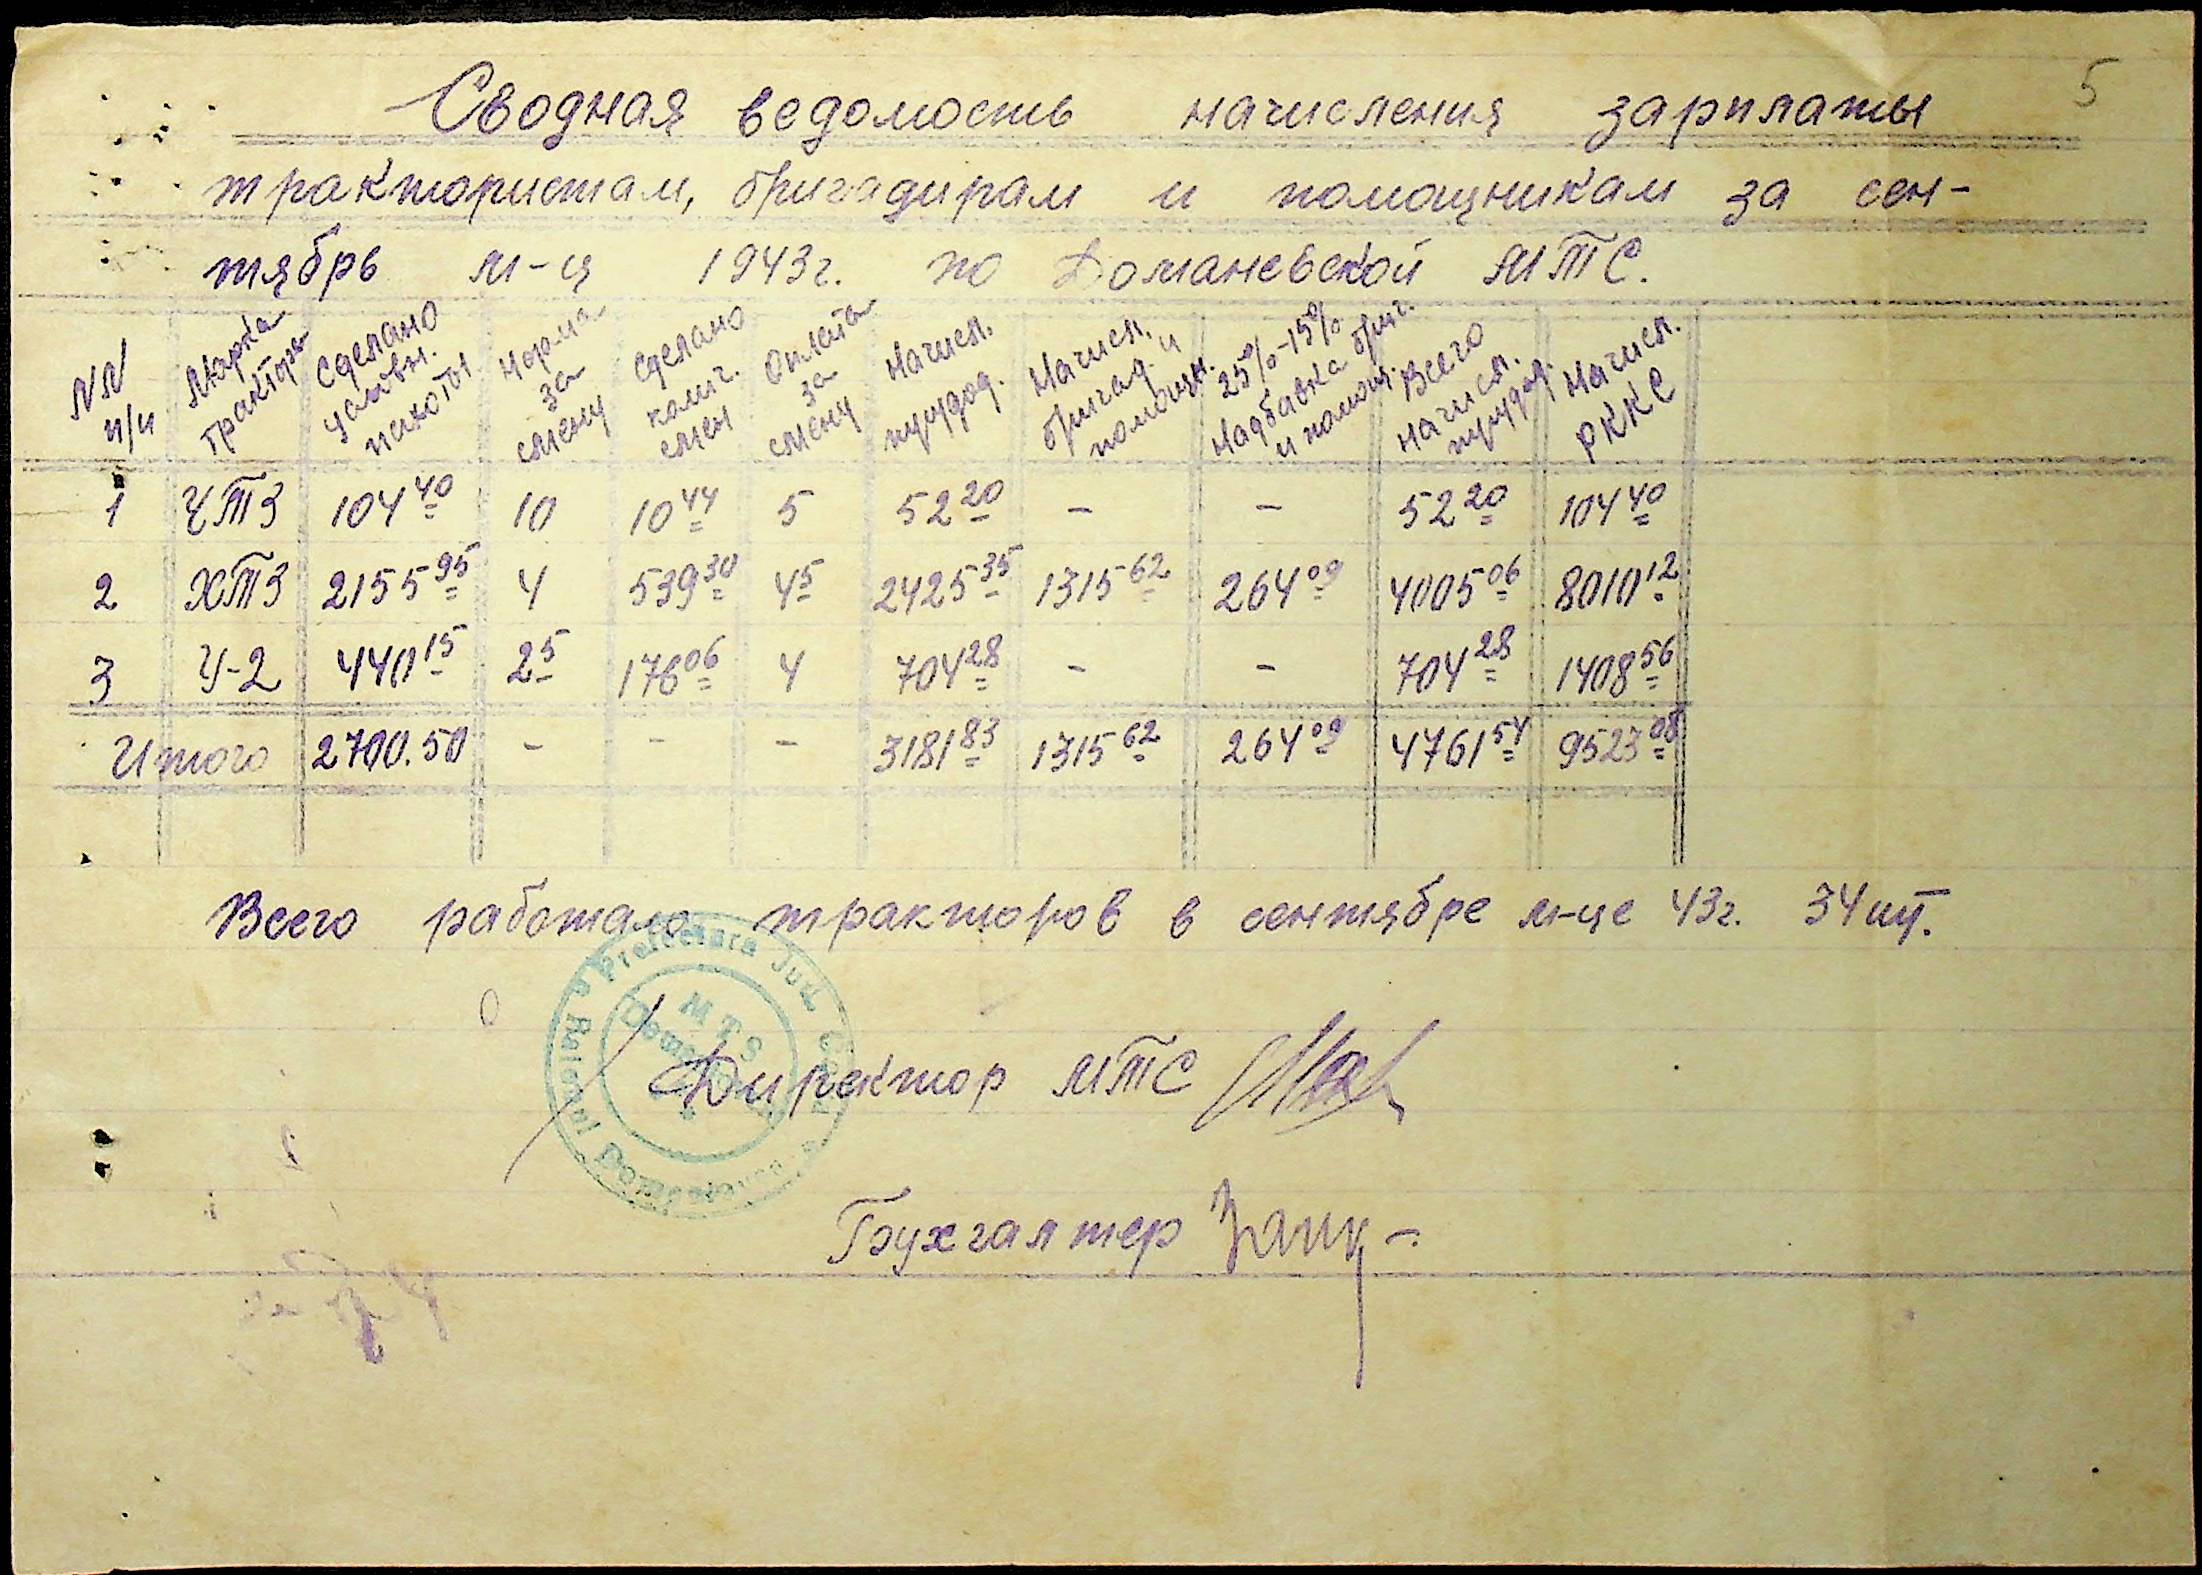 5
Сводная ведомость начисления зарплаты
трактористам, бригадирам и помощникам за сен-
тябрь м-ц 1943г. по Доманевской МТС.
NN п/п | Марка трактора | Сделано условн. пахоты | Норма за смену | Сделано колич. смен | Оплата за смену | Начисл. трудод. | Начисл. бригад. и помощн. | 25%-15% надбавка бриг. и помощ. | Всего начисл. трудод. | Начисл. РККС
1 | ЧТЗ | 104 40 | 10 | 10 44 | 5 | 52 20 | - | - | 52 20 | 104 40
2 | ХТЗ | 2155 95 | 4 | 539 30 | 4 5 | 2425 35 | 1315 62 | 264 09 | 4005 06 | 8010 12
3 | У-2 | 440 15 | 2 5 | 176 06 | 4 | 704 28 | - | - | 704 28 | 1408 56
Итого | 2700.50 | - | - | - | 3181 83 | 1315 62 | 264 09 | 4761 54 | 9523 08
Всего работало тракторов в сентябре м-це 43г. 34 шт.
Prefectura Jud.
Raionul
MTS
Директор МТС
Бухгалтер